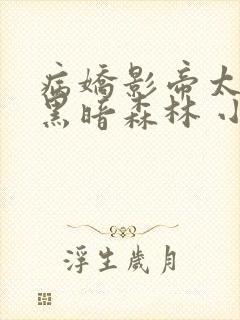 病嬌影帝太
黑暗森林 小
浮生歲月